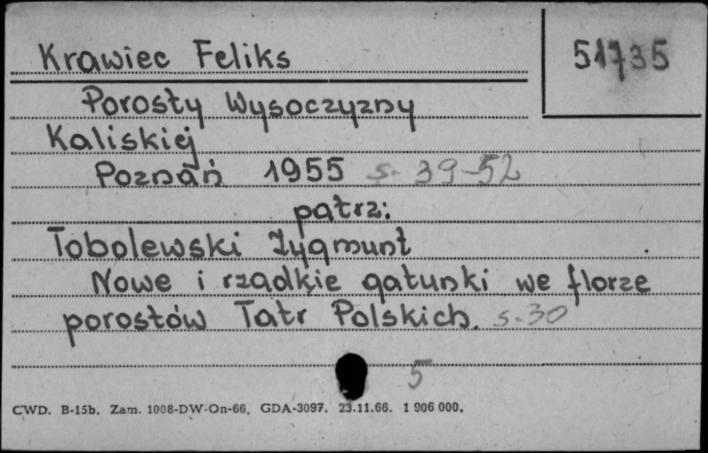 Krawiec Feliks
51735
Porosty Wysoczyzny
Kaliskiej
Poznań 1955 s. 39-52
patrz:
Tobolewski Zygmunt
Nowe i rzadkie gatunki we florze
porostów Tatr Polskich. s. 30
5
CWD. B-15b. Zam. 1008-DW-On-66, GDA-3097. 23.11.66. 1 906 000.